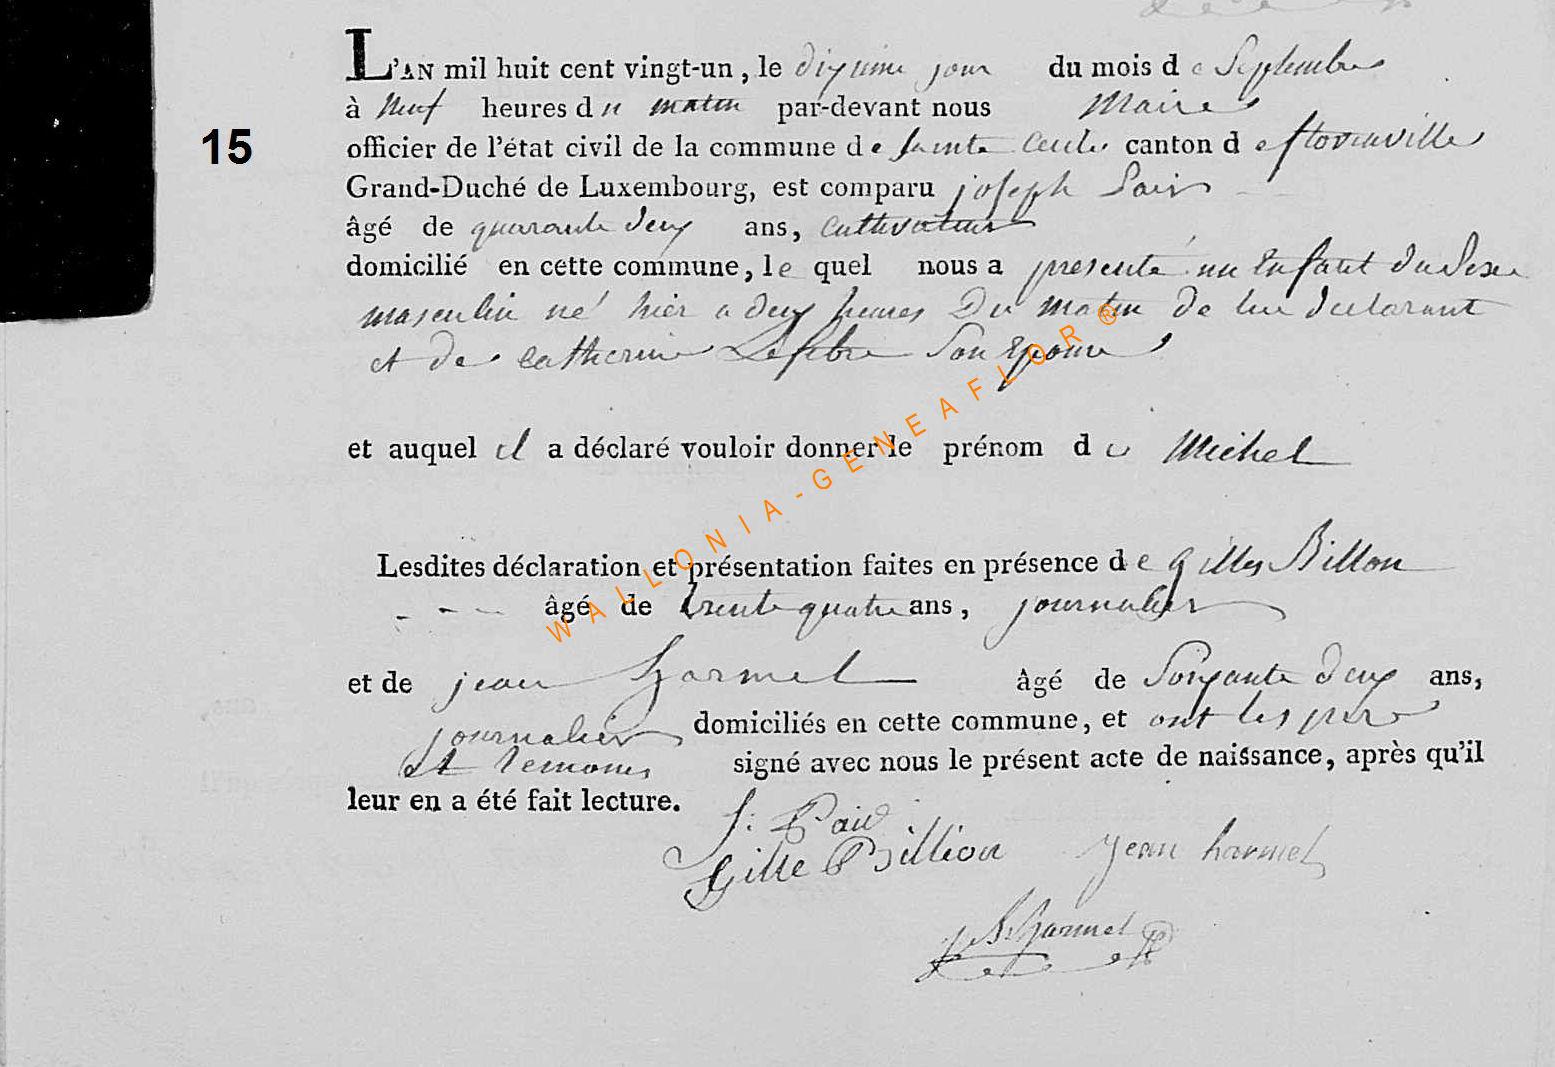 L'AN mil huit cent vingt-un, le dixieme jour du mois de Septembre
à Neuf heures du matin par-devant nous Maire
officier de l'état civil de la commune de Sainte Cecile canton de florenville
Grand-Duché de Luxembourg, est comparu joseph
15
âgé de quarante deux ans, cultivateur
domicilié en cette commune, le quel nous a presenté un Enfant du Sexe
masculin né hier a deux heures Du matin de lui declarant
et de catherine Lefebre Son Epouse
et auquel il a déclaré vouloir donner le prénom de Michel
WALLONIA-GENEAFLOR ®
Lesdites déclaration et présentation faites en présence de gilles Billon
âgé de trente quatre ans, journalier
et de jean harmel âgé de Soixante deux ans,
journalier domiciliés en cette commune, et ont les pere
et temoins signé avec nous le présent acte de naissance, après qu'il
leur en a été fait lecture.
J:
Gille Billion jean harmel
harmel